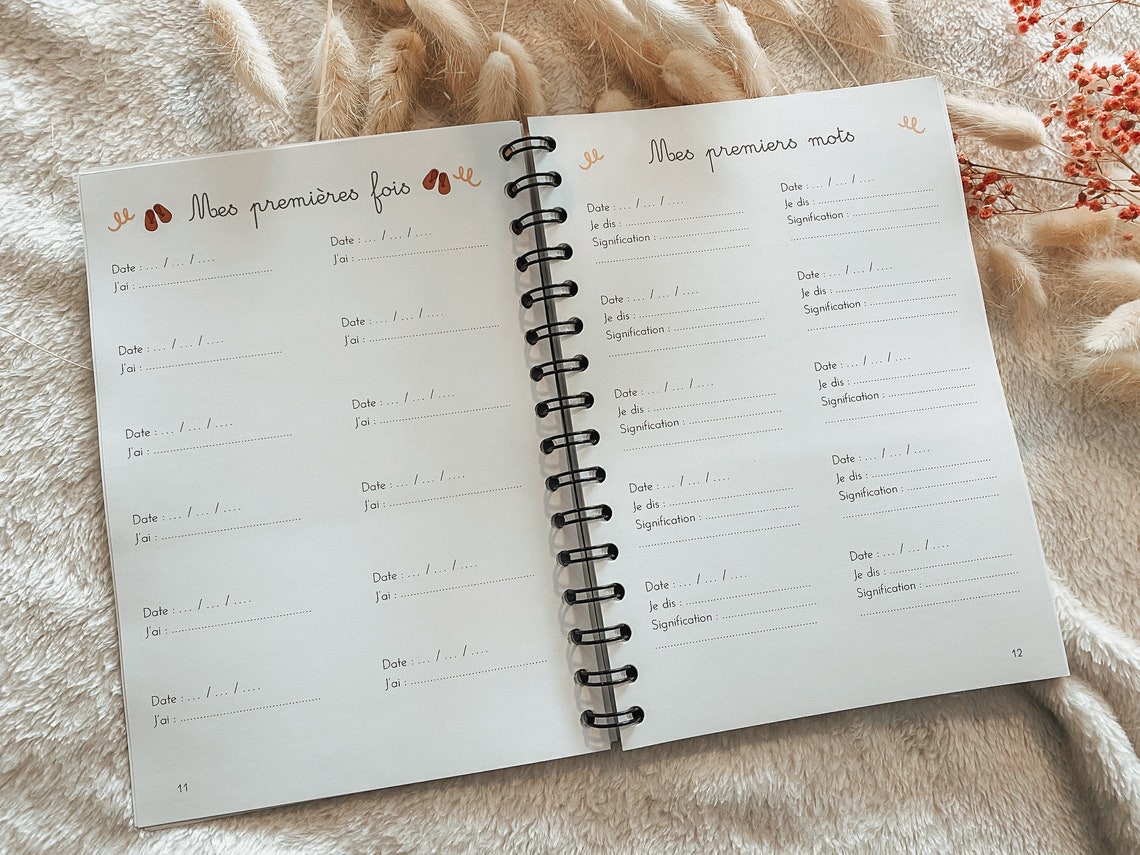 Mes premières fois
Date : ... / ... / ....
J'ai : ............................
Date : ... / ... / ....
J'ai : ............................
Date : ... / ... / ....
J'ai : ............................
Date : ... / ... / ....
J'ai : ............................
Date : ... / ... / ....
J'ai : ............................
Date : ... / ... / ....
J'ai : ............................
Date : ... / ... / ....
J'ai : ............................
Date : ... / ... / ....
J'ai : ............................
Date : ... / ... / ....
J'ai : ............................
Date : ... / ... / ....
J'ai : ............................
Date : ... / ... / ....
J'ai : ............................
Date : ... / ... / ....
J'ai : ............................
11
Mes premiers mots
Date : ... / ... / ....
Je dis : ............................
Signification : ............................
Date : ... / ... / ....
Je dis : ............................
Signification : ............................
Date : ... / ... / ....
Je dis : ............................
Signification : ............................
Date : ... / ... / ....
Je dis : ............................
Signification : ............................
Date : ... / ... / ....
Je dis : ............................
Signification : ............................
Date : ... / ... / ....
Je dis : ............................
Signification : ............................
Date : ... / ... / ....
Je dis : ............................
Signification : ............................
Date : ... / ... / ....
Je dis : ............................
Signification : ............................
Date : ... / ... / ....
Je dis : ............................
Signification : ............................
Date : ... / ... / ....
Je dis : ............................
Signification : ............................
12